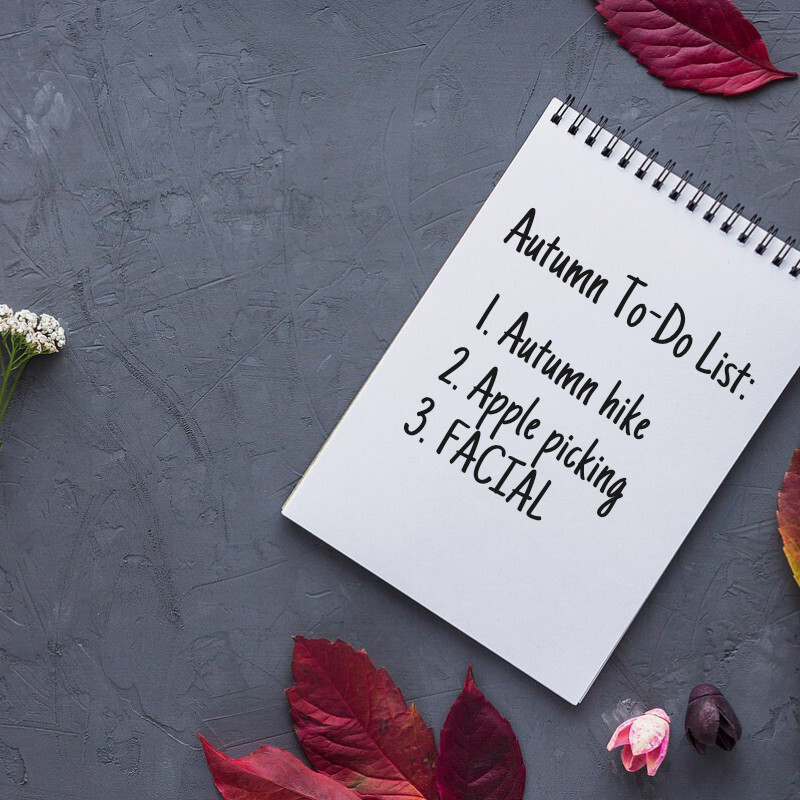 Autumn To-Do List:
1. Autumn hike
2. Apple picking
3. FACIAL